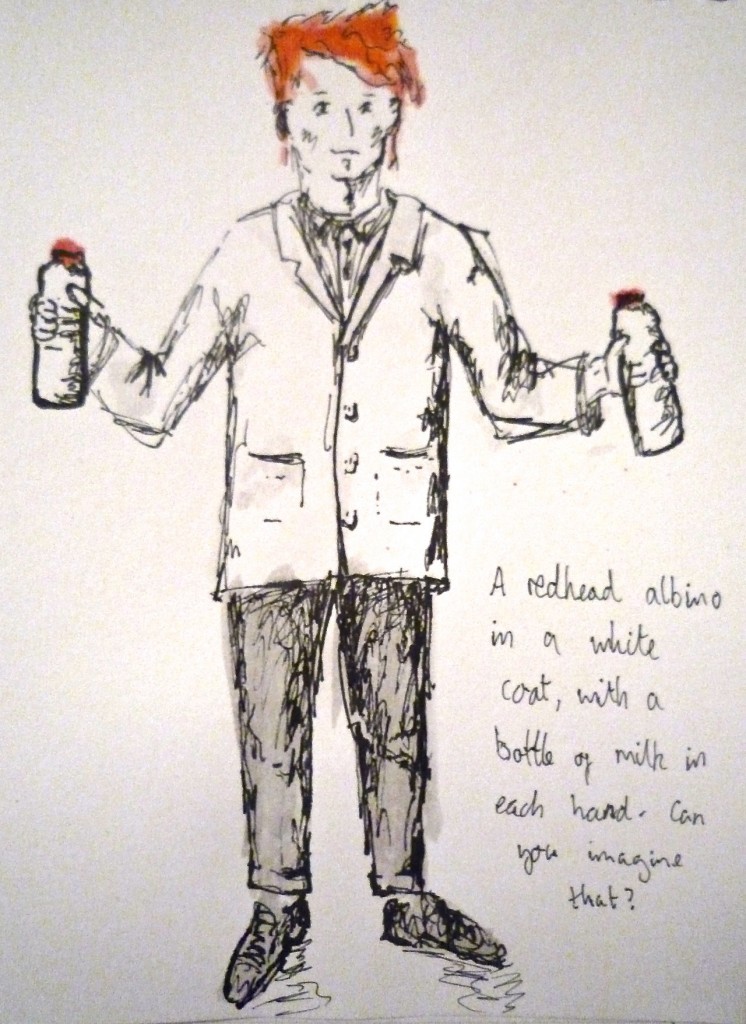 A redhead albino
in a white
coat, with a
bottle of milk in
each hand. Can
you imagine
that?